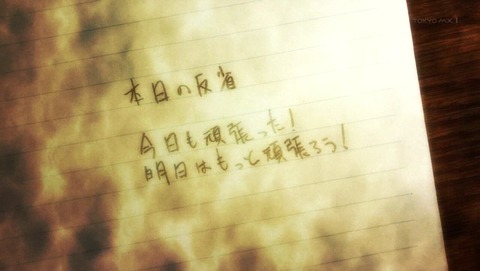 TOKYO MX 1
本日の反省
今日も頑張った!
明日はもっと頑張ろう!